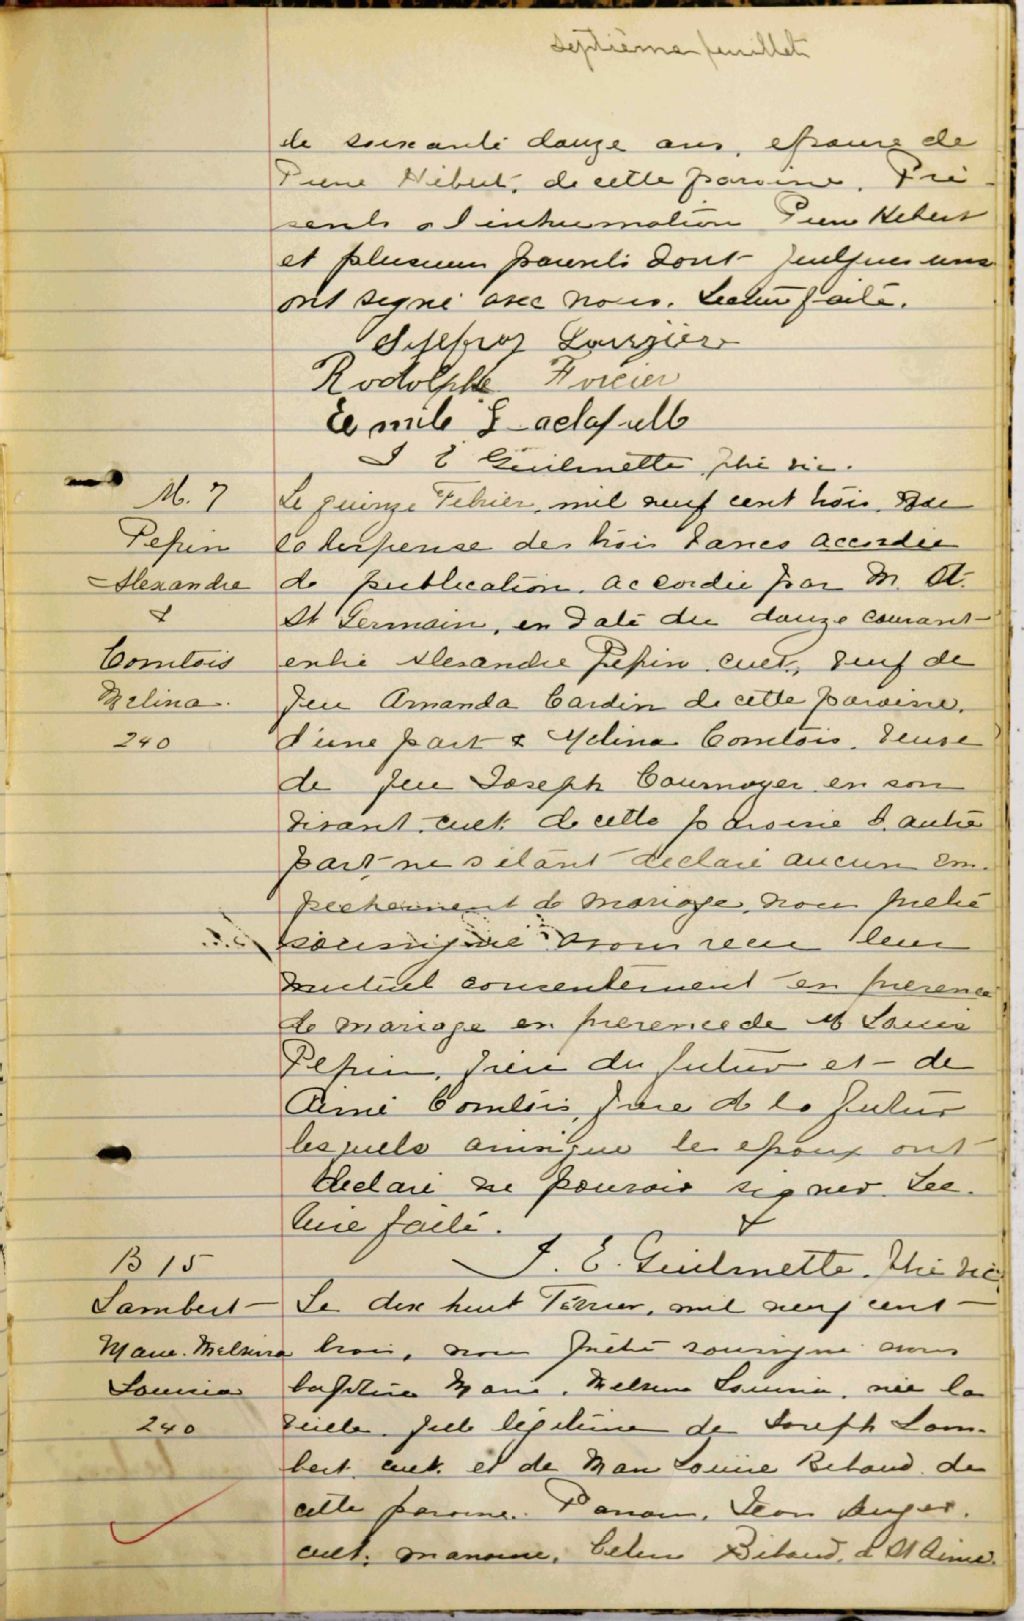 septième feuillet
de soixante douze ans, epouse de
Pierre Hébert, de cette paroisse. Pré-
sents a l'inhumation Pierre Hebert
et plusieurs parents dont quelques uns
ont signé avec nous. Lecture faite.
Rodolphe Forcier
Emile
J E Guilmette, ptre vic.
M. 7
Pepin
Alexandre
&
Comtois
Melina.
240
Le quinze Février, mil neuf cent trois, vu
la dispense des trois bancs accordée
de publication, accordée par M. A.
St Germain, en date du douze courant
entre Alexandre Pepin cult., veuf de
feu Amanda Cardin de cette paroisse,
d'une part & Melina Comtois, veuve
de feu Joseph Cournoyer en son
vivant cult. de cette paroisse d'autre
part ne s'étant déclaré aucun em-
pechement de mariage, nous prêtre
soussigné avons reçu leur
mutuel consentement en presence
de mariage en presence de M Louis
Pepin, frère du futur et de
Aimé Comtois, frere de la future
lesquels ainsi que les epoux ont
declaré ne pouvoir signer. Lec-
ture faite.
J. E. Guilmette, ptre vic.
B 15
Lambert
Marie Melvina
Louisia
240
Le dix huit Février, mil neuf cent
trois, nous prêtre soussigné avons
baptisé Marie, Melvina Louisia, née la
veille, fille légitime de Joseph Lam-
bert cult. et de Marie Louise Ritaud de
cette paroisse. Parrain, Jean Auger,
cult. marraine, Celina Ritaud, d St Aimé.